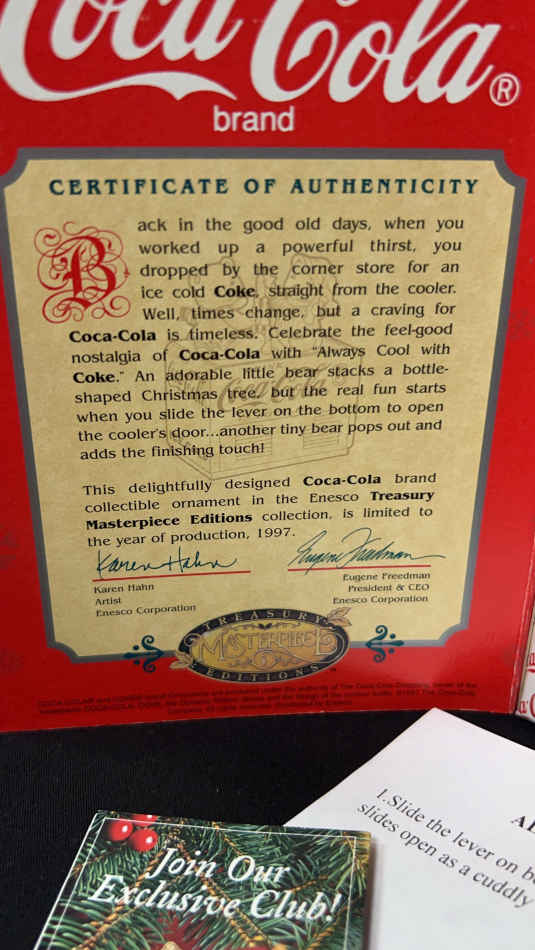 Coca-Cola®
brand
CERTIFICATE OF AUTHENTICITY
Back in the good old days, when you
worked up a powerful thirst, you
dropped by the corner store for an
ice cold Coke, straight from the cooler.
Well, times change, but a craving for
Coca-Cola is timeless. Celebrate the feel-good
nostalgia of Coca-Cola with "Always Cool with
Coke." An adorable little bear stacks a bottle-
shaped Christmas tree, but the real fun starts
when you slide the lever on the bottom to open
the cooler's door...another tiny bear pops out and
adds the finishing touch!
This delightfully designed Coca-Cola brand
collectible ornament in the Enesco Treasury
Masterpiece Editions collection, is limited to
the year of production, 1997.
Karen Hahn
Eugene Freedman
Karen Hahn
Artist
Enesco Corporation
Eugene Freedman
President & CEO
Enesco Corporation
TREASURY
MASTERPIECE
EDITIONS
1. Slide the lever on
slides open as a cuddly
Join Our
Exclusive Club!